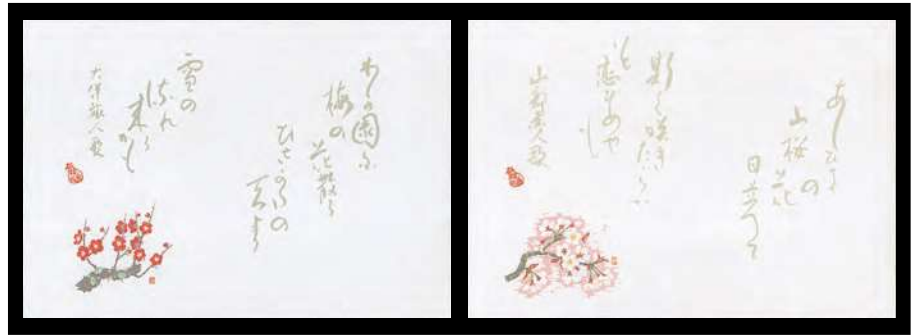 わが園に
梅の花散る
ひさかたの
天より
雪の
流れ
来るかも
大伴旅人歌
あしひき
の
山桜花
日並べて
斯く咲きたらば
いと
恋めやも
山部赤人歌